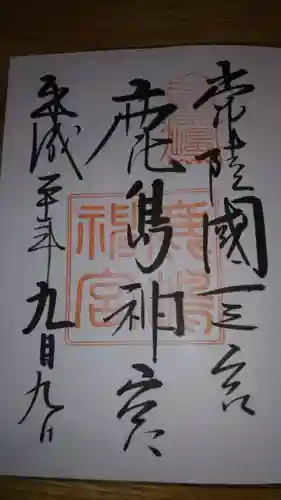 常陸國一之宮
鹿島神宮
平成年九月九日
鹿嶋
神宮